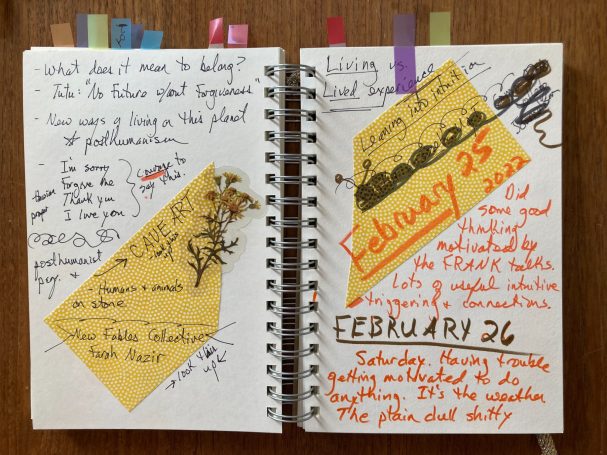 - What does it mean to belong?
- Tutu: "No Future w/out Forgiveness"
- New ways of living on this planet
* posthumanism
- I'm sorry
Forgive me
Thank you
I love you
Courage to
say this.
posthumanist
CAVE ART
look this
up
- Humans & animals
on stone
New Fables Collective
Sarah Nazir
→ look this
up
Living vs.
Lived experience
Leaning into intuition
February 25
2022
Did
some good
thinking
motivated by
the FRANK talks.
Lots of useful intuitive
triggering & connections.
FEBRUARY 26
Saturday. Having trouble
getting motivated to do
anything. It's the weather
The plain dull shitty